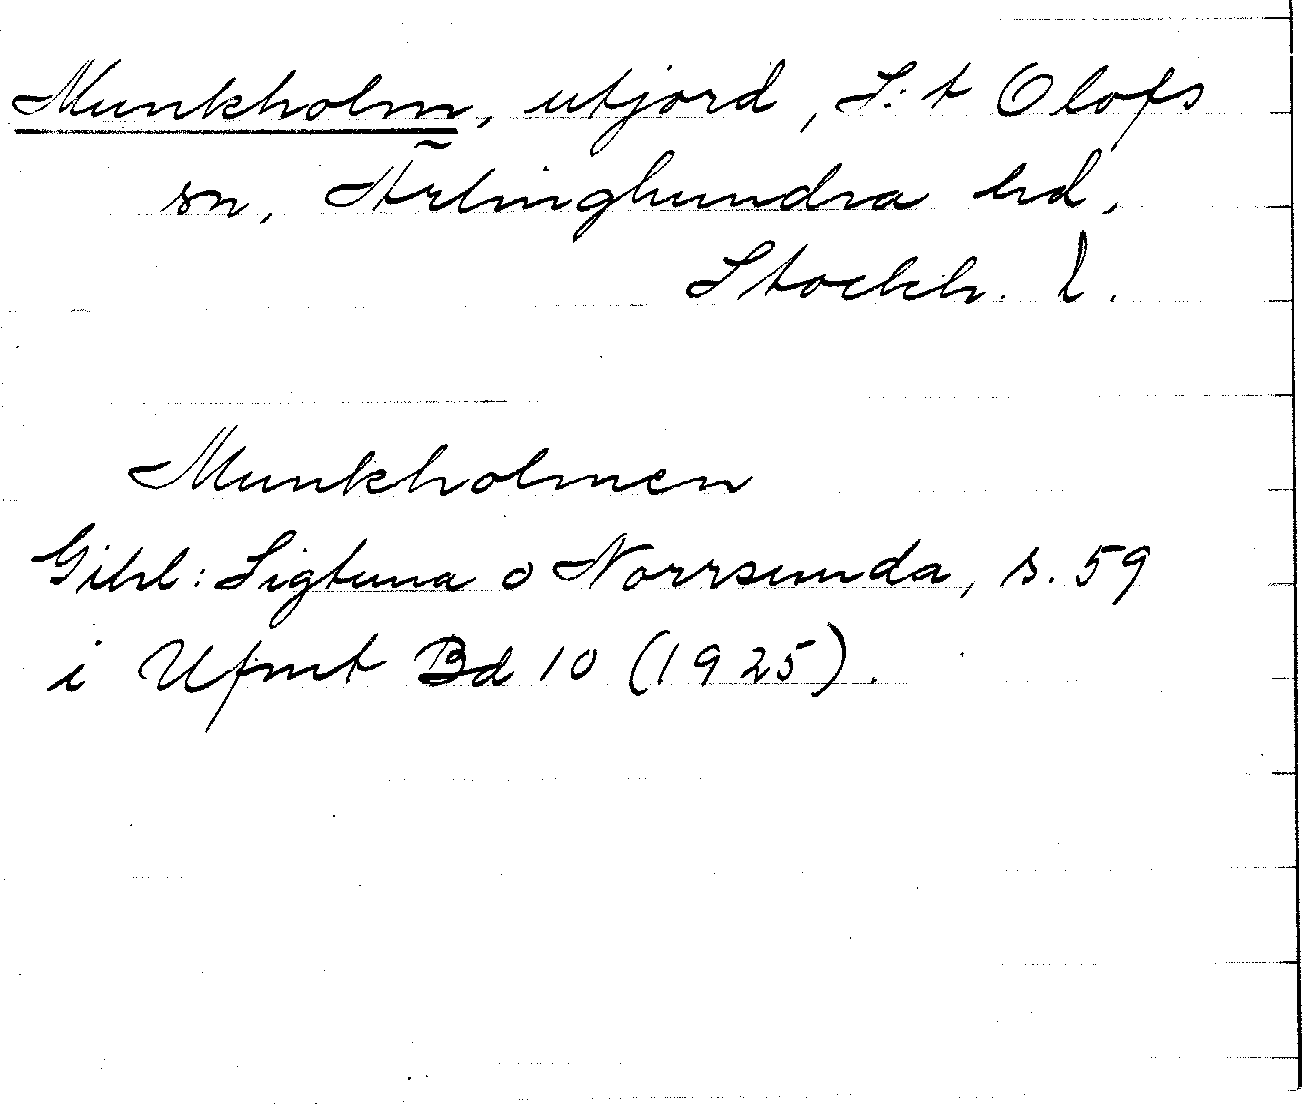 Munkholm, utjord, S:t Olofs
sn, Ärlinghundra hd,
Stockh. l.
Munkholmen
Gihl: Sigtuna o Norrsunda, s. 59
i Ufmt Bd 10 (1925).